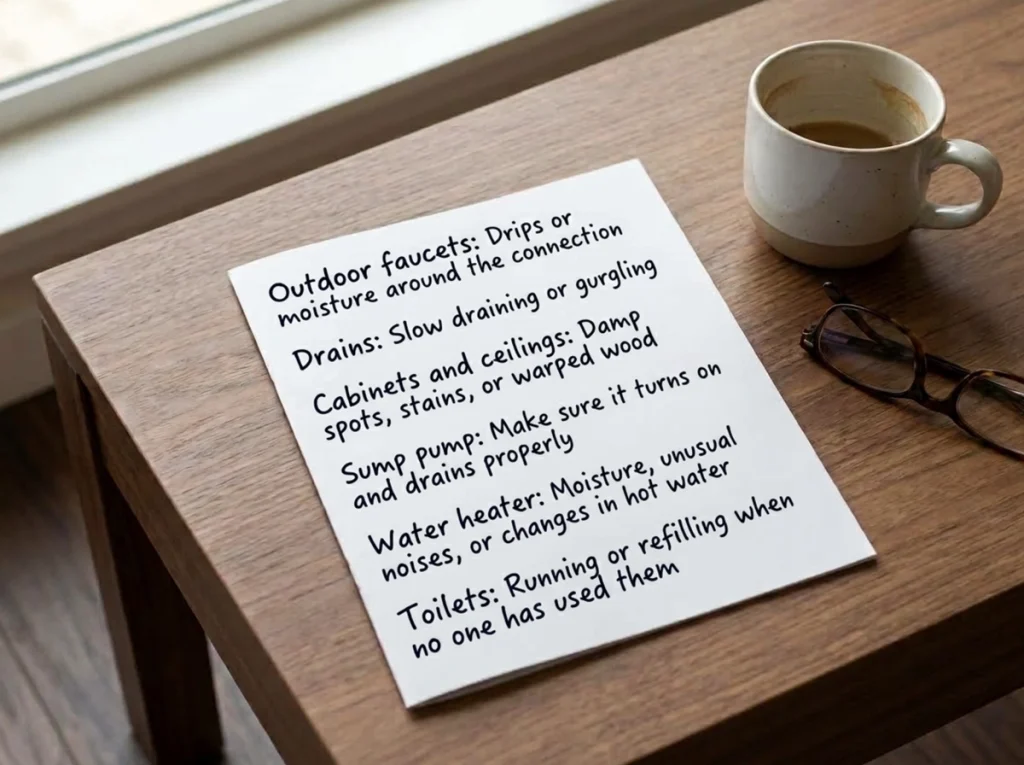 Outdoor faucets: Drips or
moisture around the connection
Drains: Slow draining or gurgling
Cabinets and ceilings: Damp
spots, stains, or warped wood
Sump pump: Make sure it turns on
and drains properly
Water heater: Moisture, unusual
noises, or changes in hot water
Toilets: Running or refilling when
no one has used them